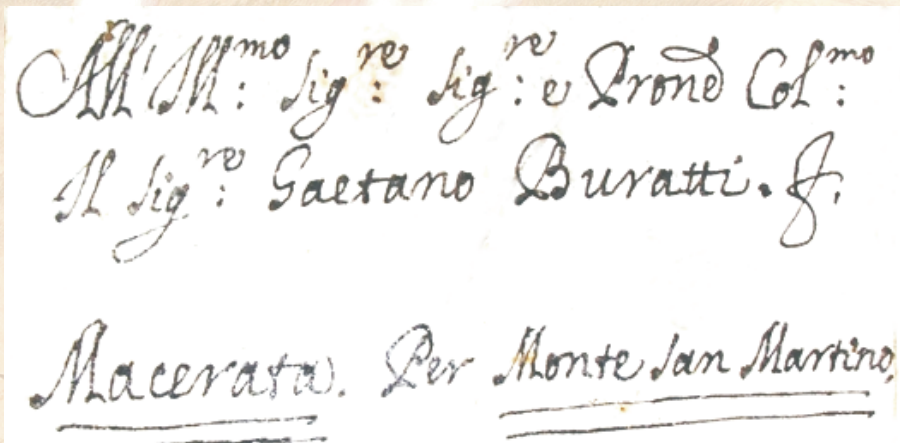 All' Ill:mo Sig:re Sig:re e Prone Col:mo
Il Sig:re Gaetano Buratti.
Macerata. Per Monte San Martino.